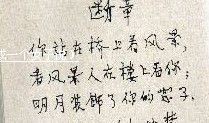 断章
你站在桥上看风景，
看风景人在楼上看你；
明月装饰了你的窗子，